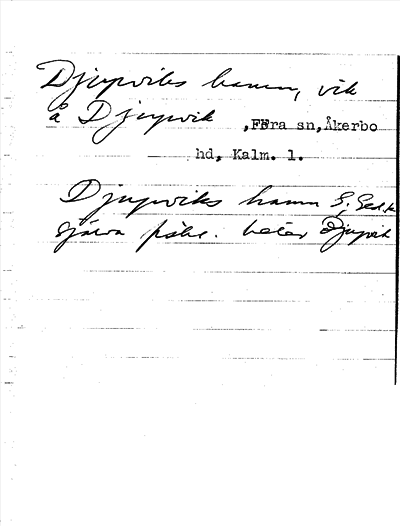 Djupviks hamn, vik
å Djupvik ,FFra sn,Åkerbo
hd, Kalm. l.
Djupviks hamn S,
själva heter Djupvik